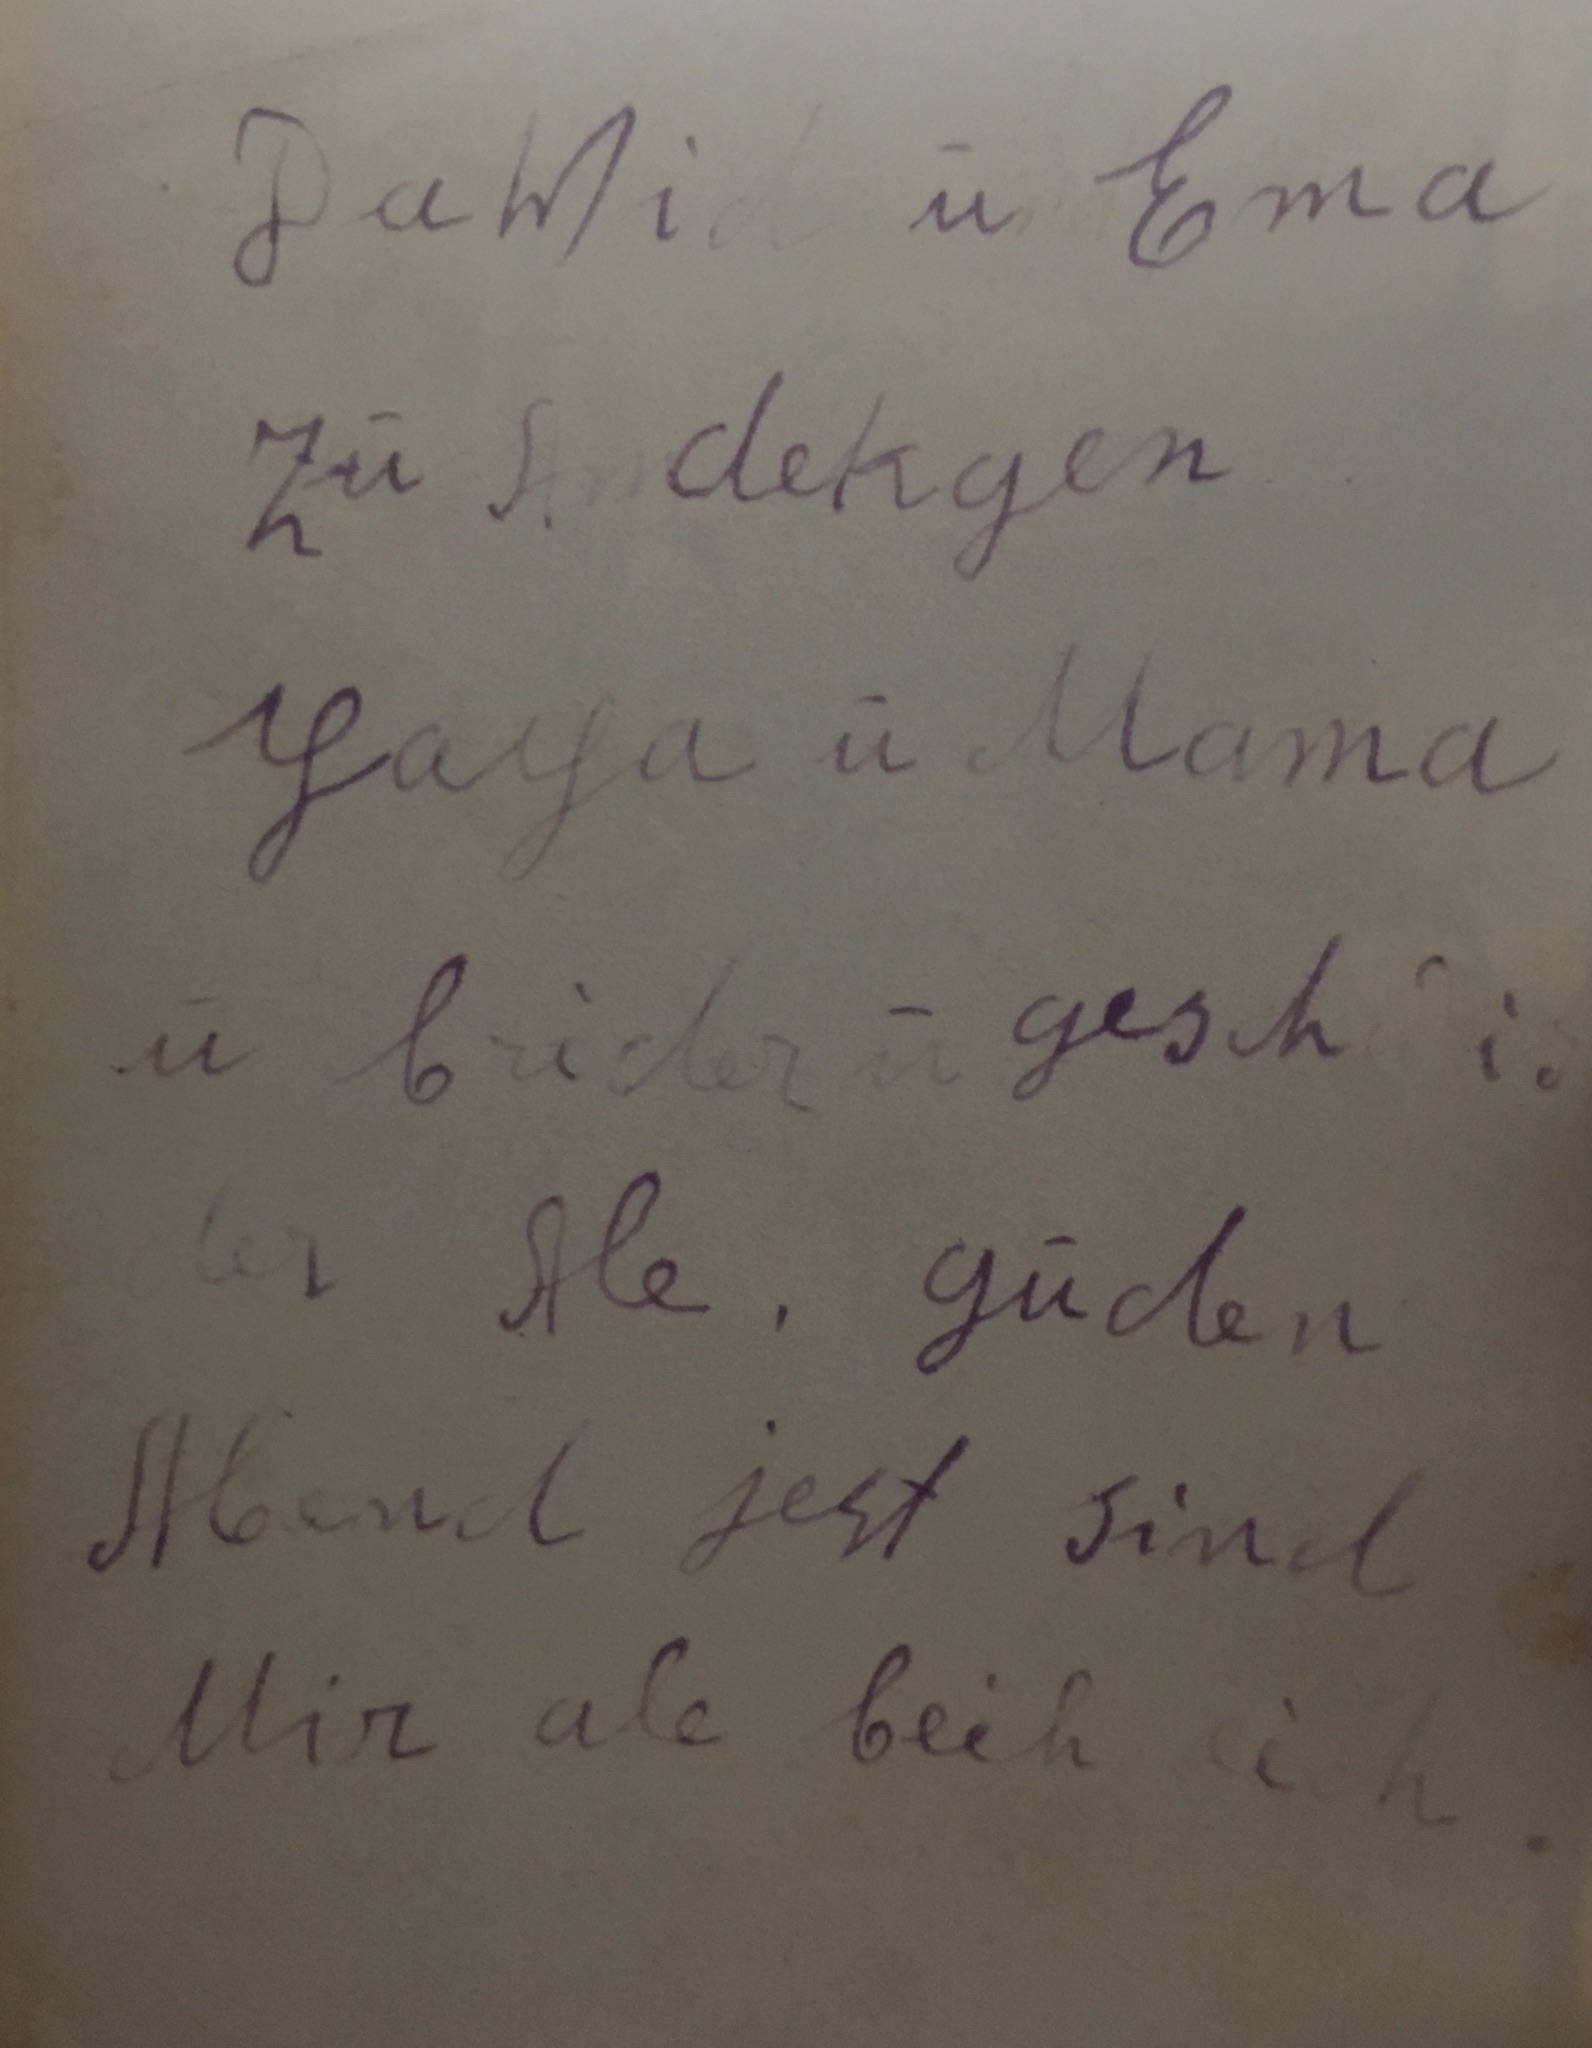 DaWid ū Ema
Zū Andekgen
YaYa ū Mama
ū brider ū geschwis
der Ale, gūden
Abend jest sind
Mir ale beih eich.